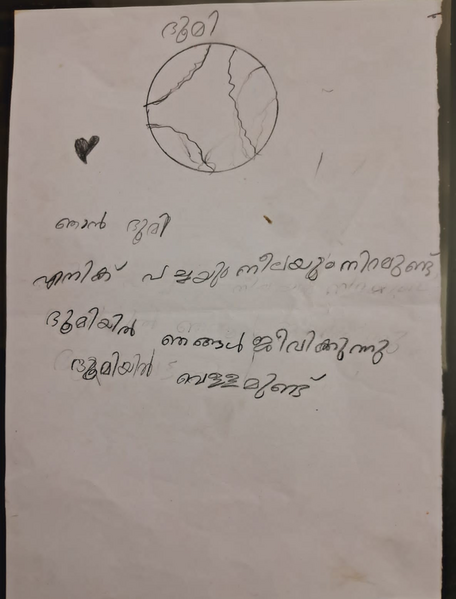 ഭൂമി
ഞാൻ ഭൂമി
എനിക് പച്ചയും നീലയും നിറമുണ്ട്
ഭൂമിയിൽ ഞങ്ങൾ ജീവിക്കുന്നു
ഭൂമിയിൽ വെള്ളമുണ്ട്